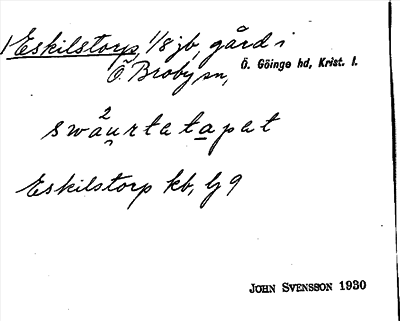 1 Eskilstorp, 1/8 jb, gård i
Ö. Broby sn, Ö. Göinge hd, Krist. l.
2
swau̯rtatapat
Eskilstorp kb, lj 9
JOHN SVENSSON 1930